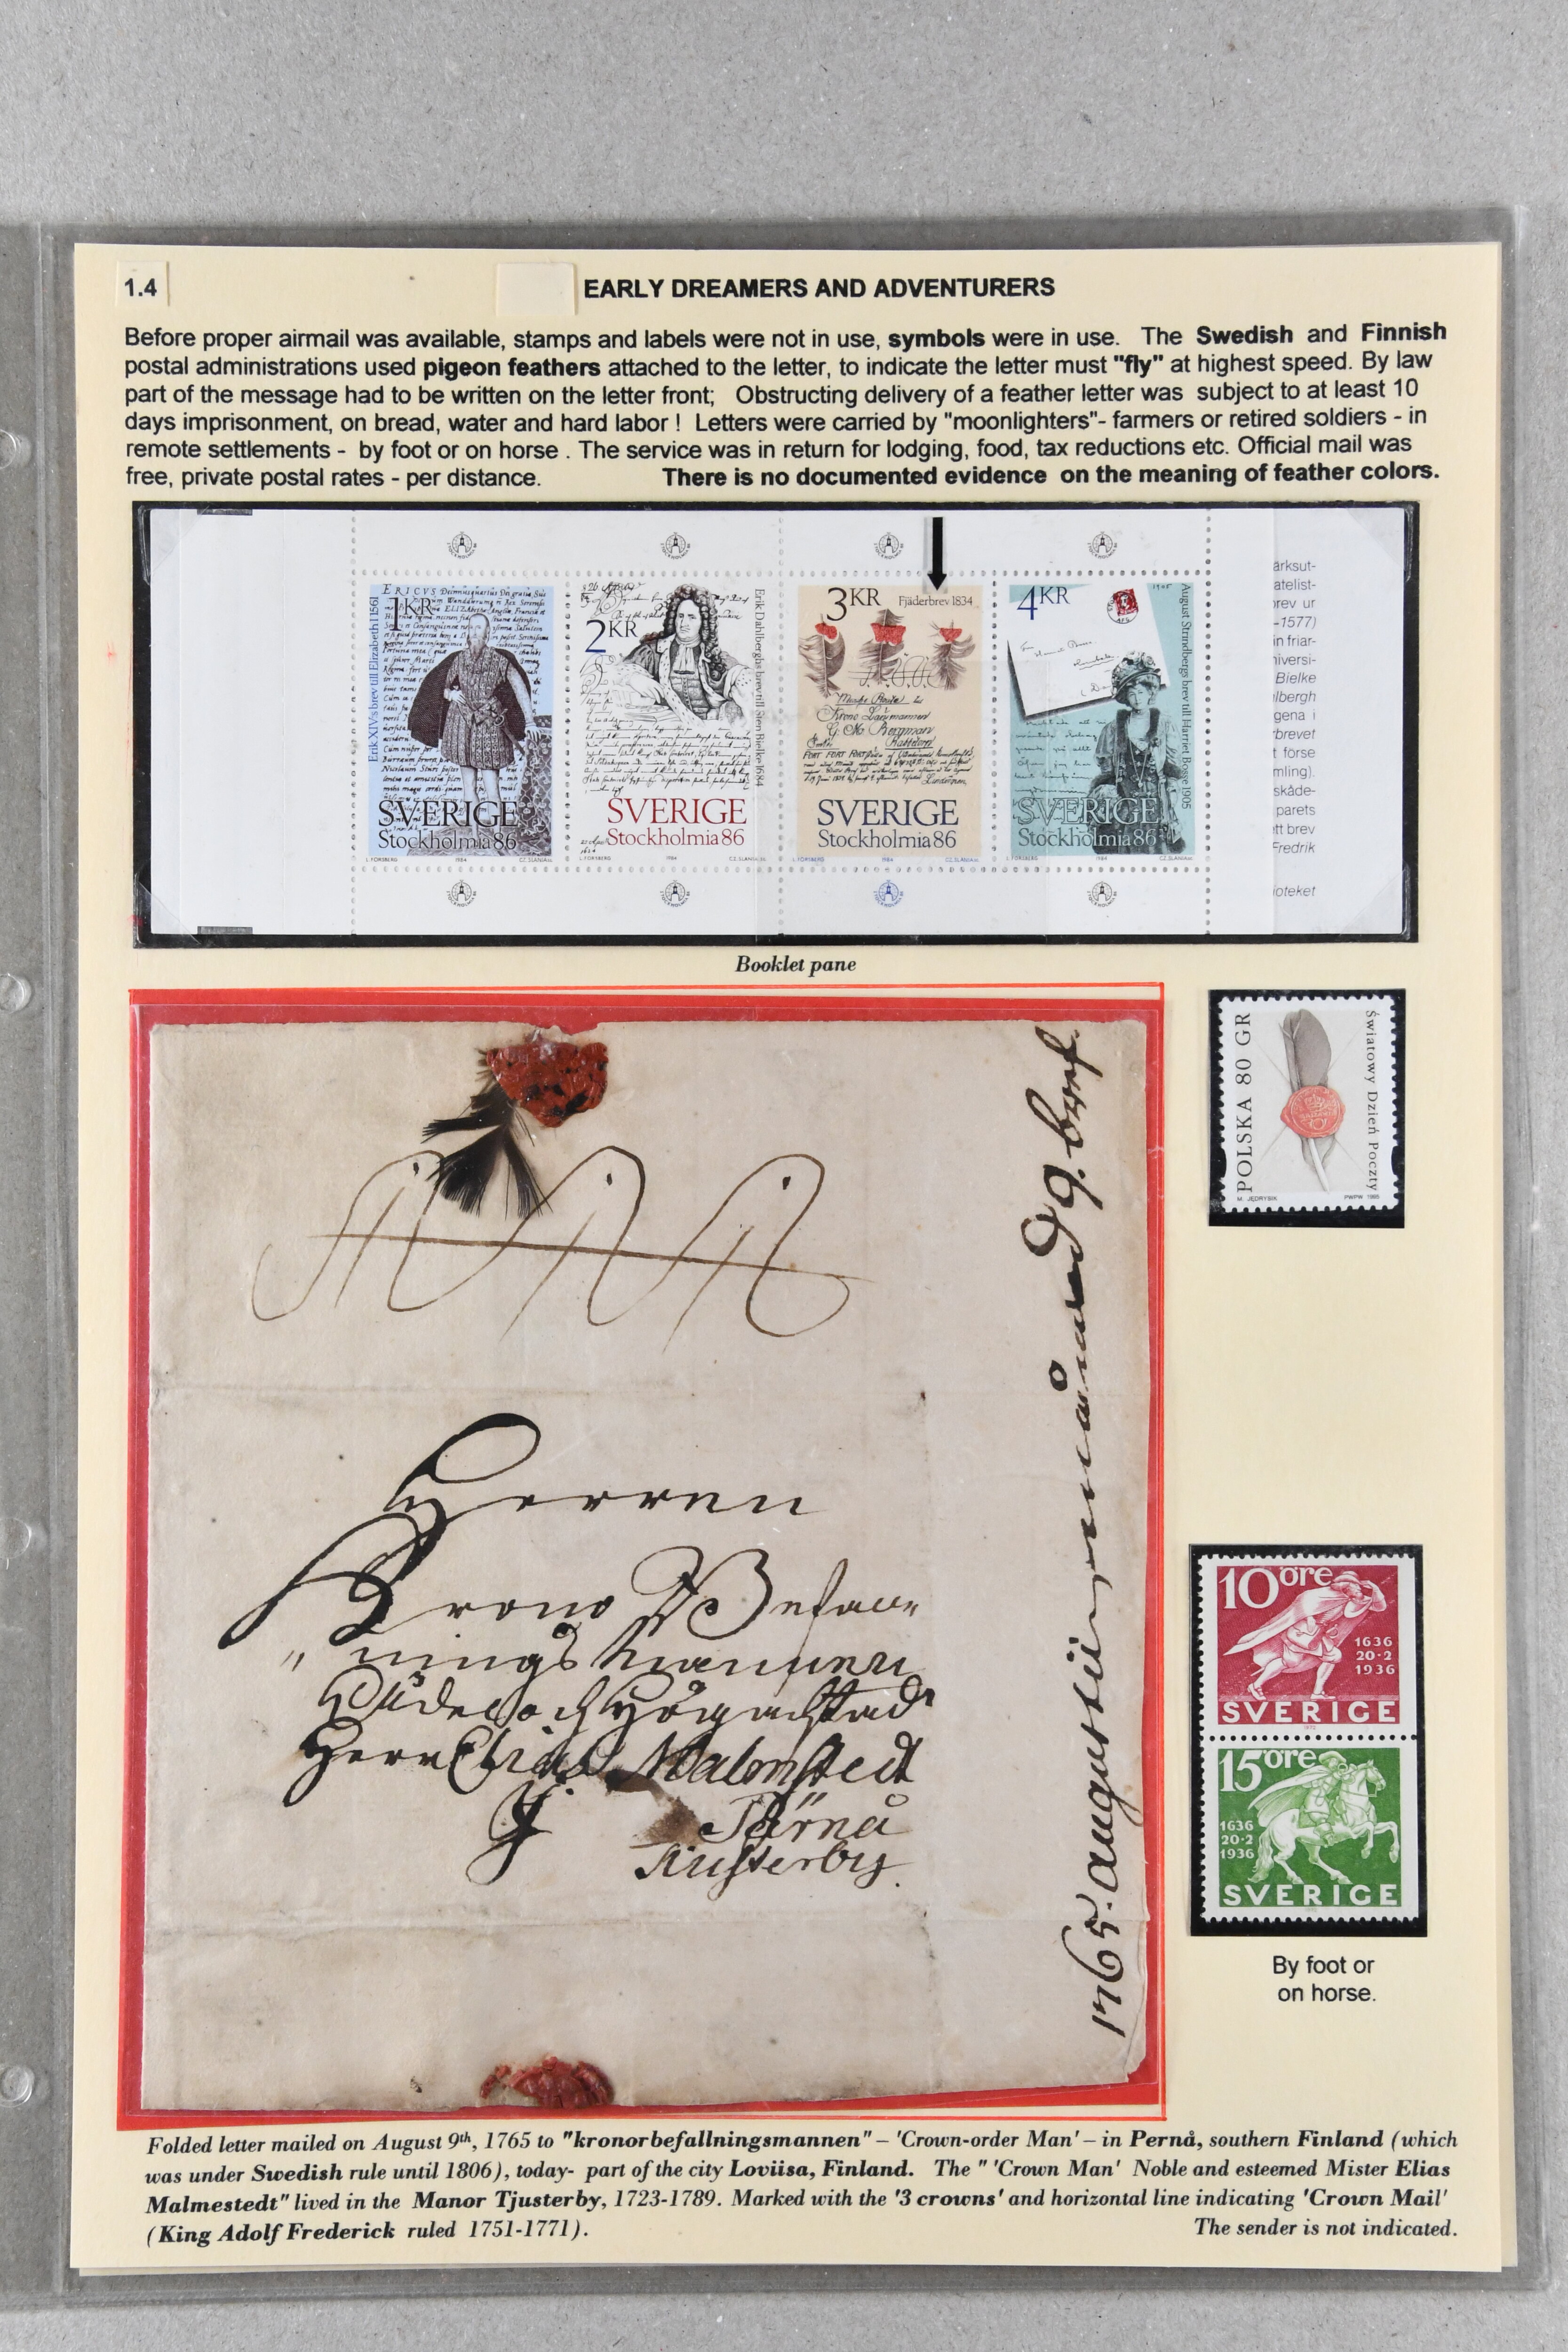 1.4
EARLY DREAMERS AND ADVENTURERS
Before proper airmail was available, stamps and labels were not in use, symbols were in use. The Swedish and Finnish
postal administrations used pigeon feathers attached to the letter, to indicate the letter must "fly" at highest speed. By law
part of the message had to be written on the letter front; Obstructing delivery of a feather letter was subject to at least 10
days imprisonment, on bread, water and hard labor ! Letters were carried by "moonlighters"- farmers or retired soldiers - in
remote settlements - by foot or on horse . The service was in return for lodging, food, tax reductions etc. Official mail was
free, private postal rates - per distance. There is no documented evidence on the meaning of feather colors.
1KR
Erik XIV's brev till Elizabeth I 1561
SVERIGE
Stockholmia86
L. FORSBERG 1984 CZ. SLANIA sc.
2KR
Erik Dahlberghs brev till Sten Bielke 1684
SVERIGE
Stockholmia86
L. FORSBERG 1984 CZ. SLANIA sc.
3KR
Fjäderbrev 1834
Krono Länsmannen
G. M. Bergman
SVERIGE
Stockholmia86
L. FORSBERG 1984 CZ. SLANIA sc.
4KR
1905
August Strindbergs brev till Harriet Bosse 1905
SVERIGE
Stockholmia86
L. FORSBERG 1984 CZ. SLANIA sc.
ärksut-
atelist-
brev ur
-1577)
in friar-
niversi-
Bielke
hlbergh
gena i
rbrevet
t förse
mling).
skåde-
parets
ett brev
Fredrik
ioteket
Booklet pane
POLSKA 80 GR
Światowy Dzień Poczty
M. JĘDRYSIK PWPW 1995
Herren
Krono Befall
nings Mannen
Ädel och Högachtad
Herr Elias Malmstedt
J Pärnå
Kiusterby.
1765. augustii månad 9. bref.
10 öre
1636
20·2
1936
SVERIGE
15 öre
1636
20·2
1936
SVERIGE
By foot or
on horse.
Folded letter mailed on August 9th, 1765 to "kronorbefallningsmannen" – 'Crown-order Man' – in Pernå, southern Finland (which
was under Swedish rule until 1806), today- part of the city Loviisa, Finland. The " 'Crown Man' Noble and esteemed Mister Elias
Malmestedt" lived in the Manor Tjusterby, 1723-1789. Marked with the '3 crowns' and horizontal line indicating 'Crown Mail'
(King Adolf Frederick ruled 1751-1771). The sender is not indicated.